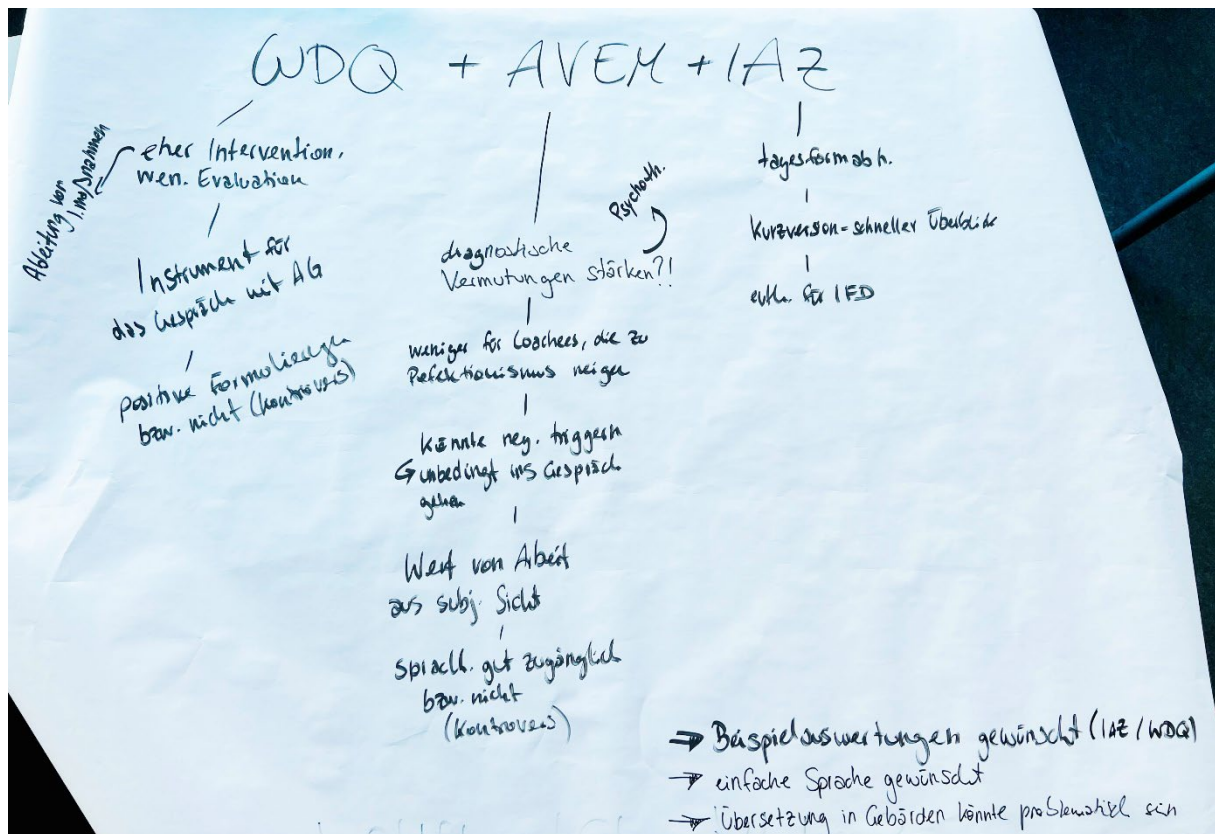 WDQ + AVEM + IAZ
eher Intervention,
wen. Evaluation
Ableitung von
I.maßnahmen
Instrument für
das Gespräch mit AG
positive Formulierungen
bzw. nicht (kontrovers)
diagnostische
Vermutungen stärken?!
Psychoth.
weniger für Coachees, die zu
Pefektionismus neigen
könnte neg. triggern
unbedingt ins Gespräch
gehen
Wert von Arbeit
aus subj. Sicht
sprachl. gut zugänglich
bzw. nicht
(kontrovers)
tagesformabh.
Kurzversion = schneller Überblick
evtl. für IFD
→ Beispielauswertungen gewünscht (IAZ / WDQ)
→ einfache Sprache gewünscht
→ Übersetzung in Gebärden könnte problematisch sein